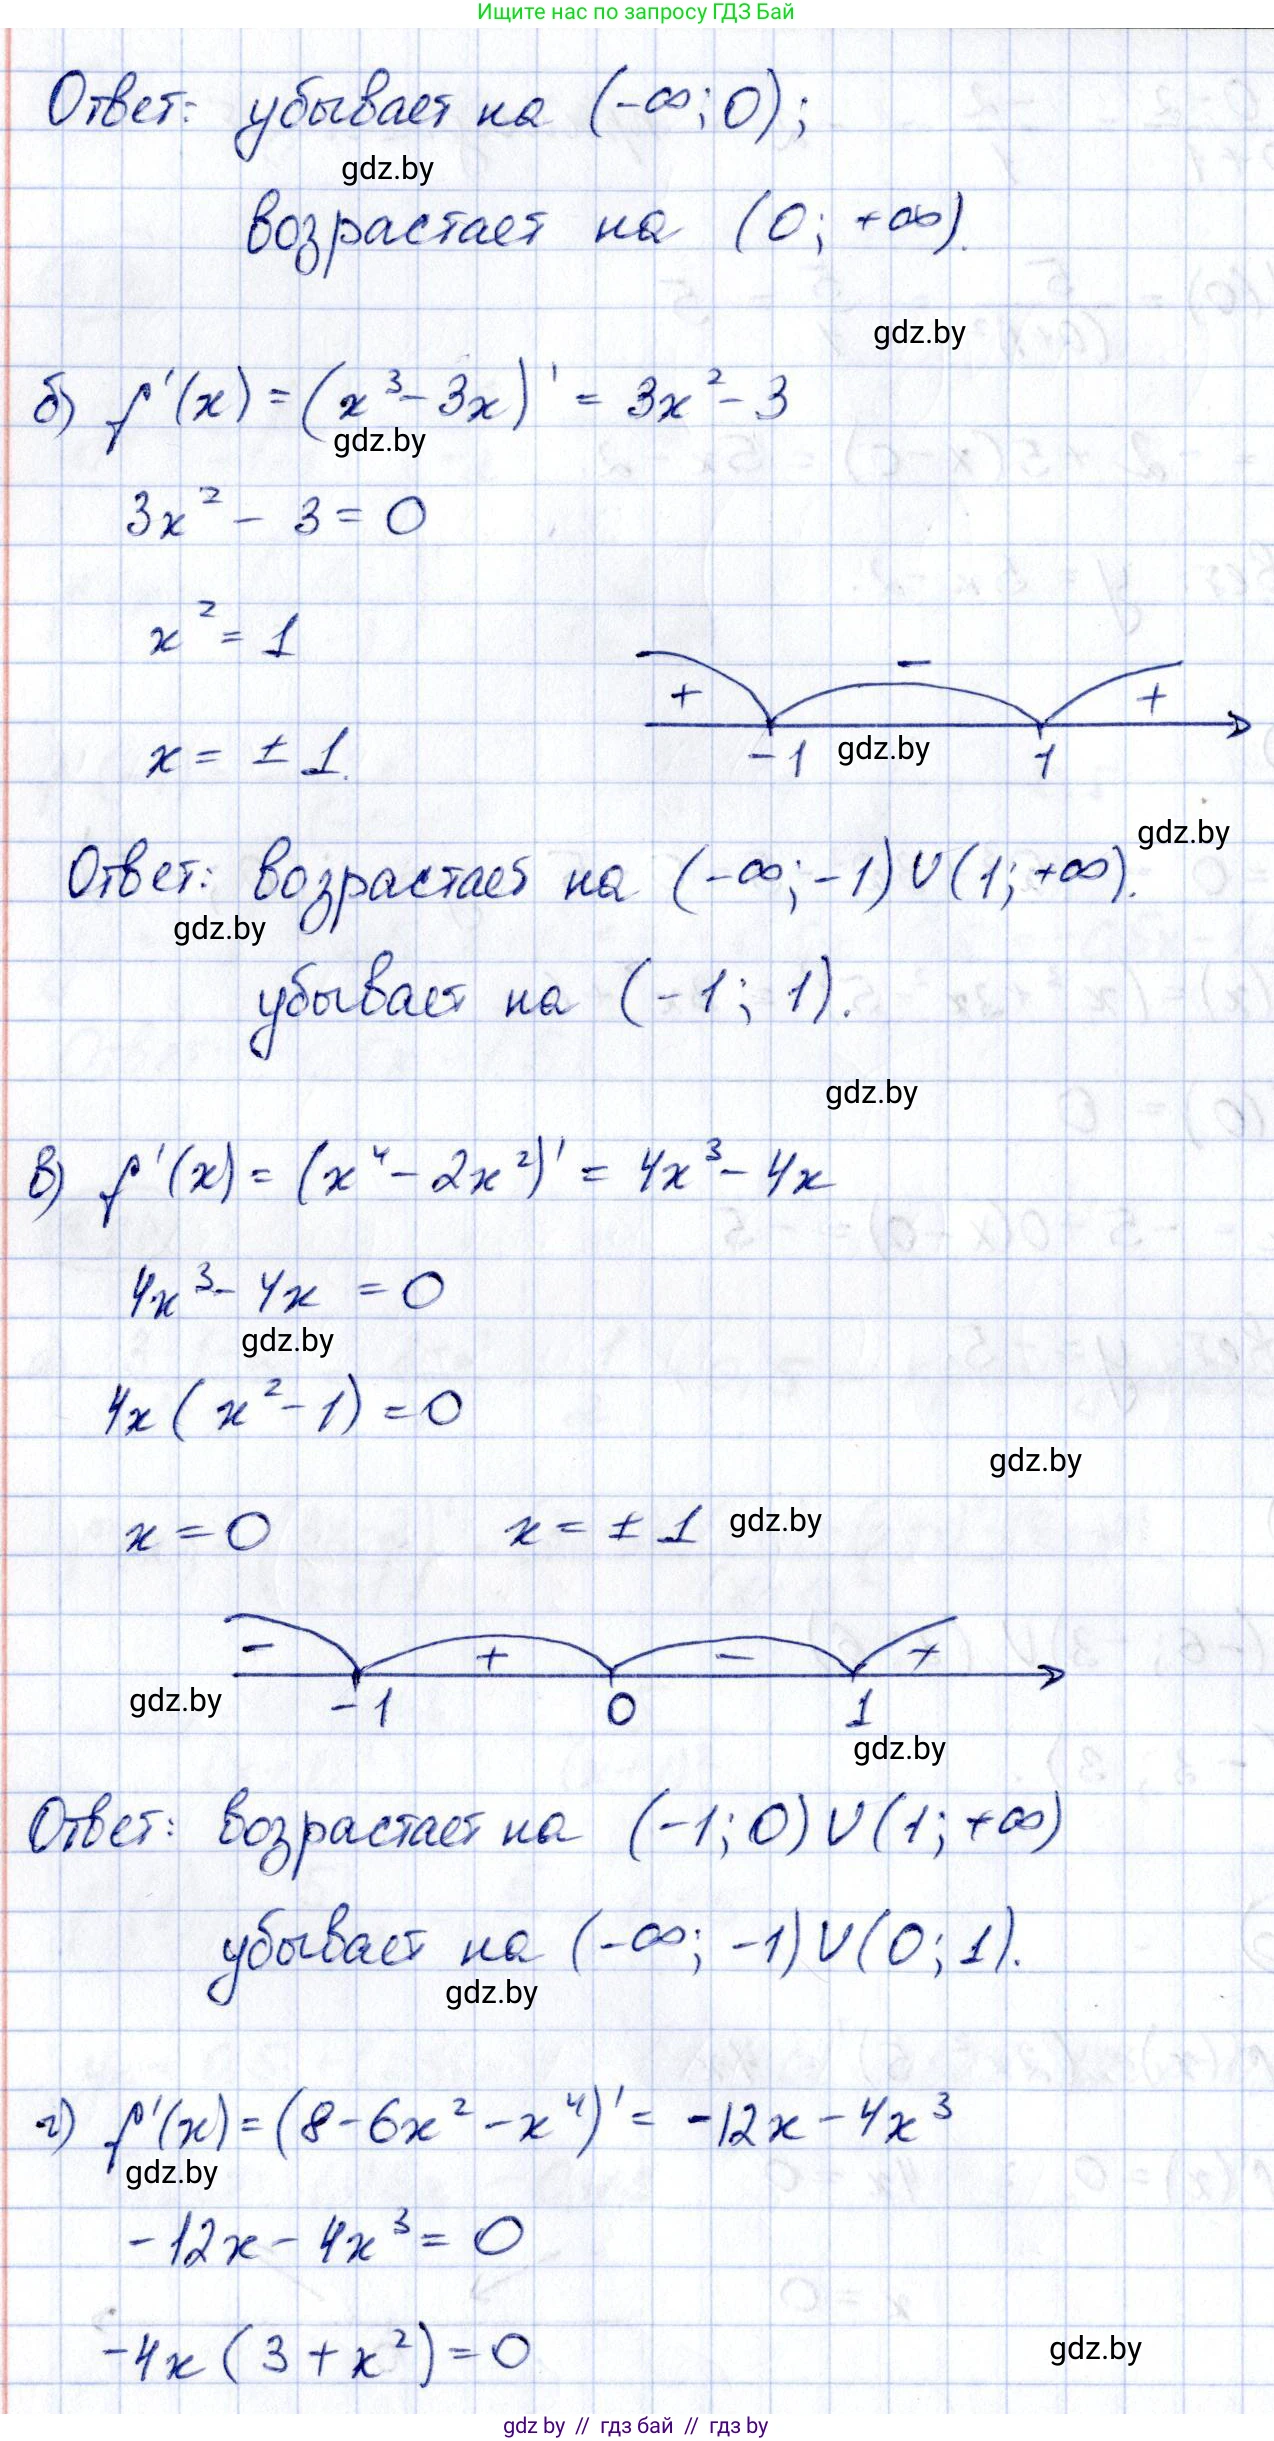 Ищите нас по запросу ГДЗ Бай
Ответ: убывает на (-∞; 0);
gdz.by
возрастает на (0; +∞).
gdz.by
б) f'(x) = (x³ - 3x)' = 3x² - 3
gdz.by
3x² - 3 = 0
x² = 1
+ - +
x = ± 1.
-1 gdz.by 1
gdz.by
Ответ: возрастает на (-∞; -1) ∪ (1; +∞).
gdz.by
убывает на (-1; 1).
gdz.by
в) f'(x) = (x⁴ - 2x²)' = 4x³ - 4x
4x³ - 4x = 0
gdz.by
4x (x² - 1) = 0
gdz.by
x = 0 x = ± 1 gdz.by
- + - +
gdz.by -1 0 1
gdz.by
Ответ: возрастает на (-1; 0) ∪ (1; +∞)
убывает на (-∞; -1) ∪ (0; 1).
gdz.by
г) f'(x) = (8 - 6x² - x⁴)' = -12x - 4x³
gdz.by
-12x - 4x³ = 0
-4x (3 + x²) = 0
gdz.by
gdz by // гдз бай // гдз by